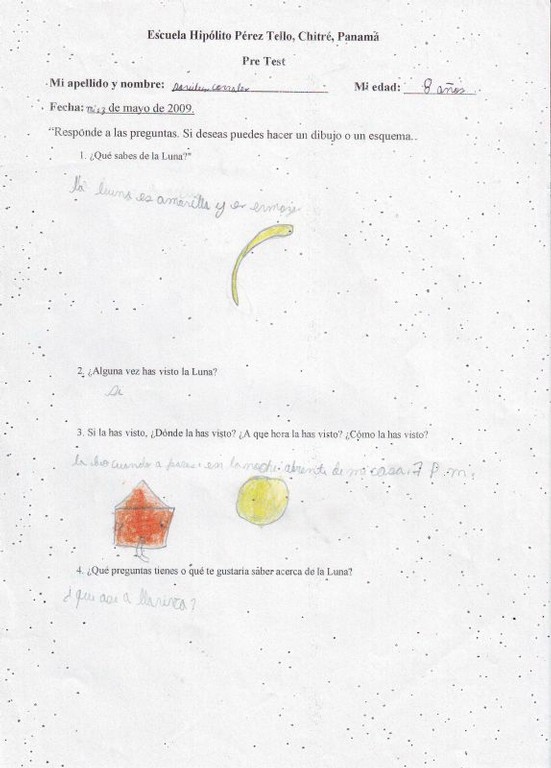 Escuela Hipólito Pérez Tello, Chitré, Panamá
Pre Test
Mi apellido y nombre: Mi edad: 8 años
Fecha: de mayo de 2009.
“Responde a las preguntas. Si deseas puedes hacer un dibujo o un esquema..
1. ¿Qué sabes de la Luna?"
la luna es amarilla y es ermosa
2. ¿Alguna vez has visto la Luna?
si
3. Si la has visto, ¿Dónde la has visto? ¿A que hora la has visto? ¿Cómo la has visto?
en la noche de mi casa. 7 p.m.
4. ¿Qué preguntas tienes o qué te gustaría saber acerca de la Luna?
¿que